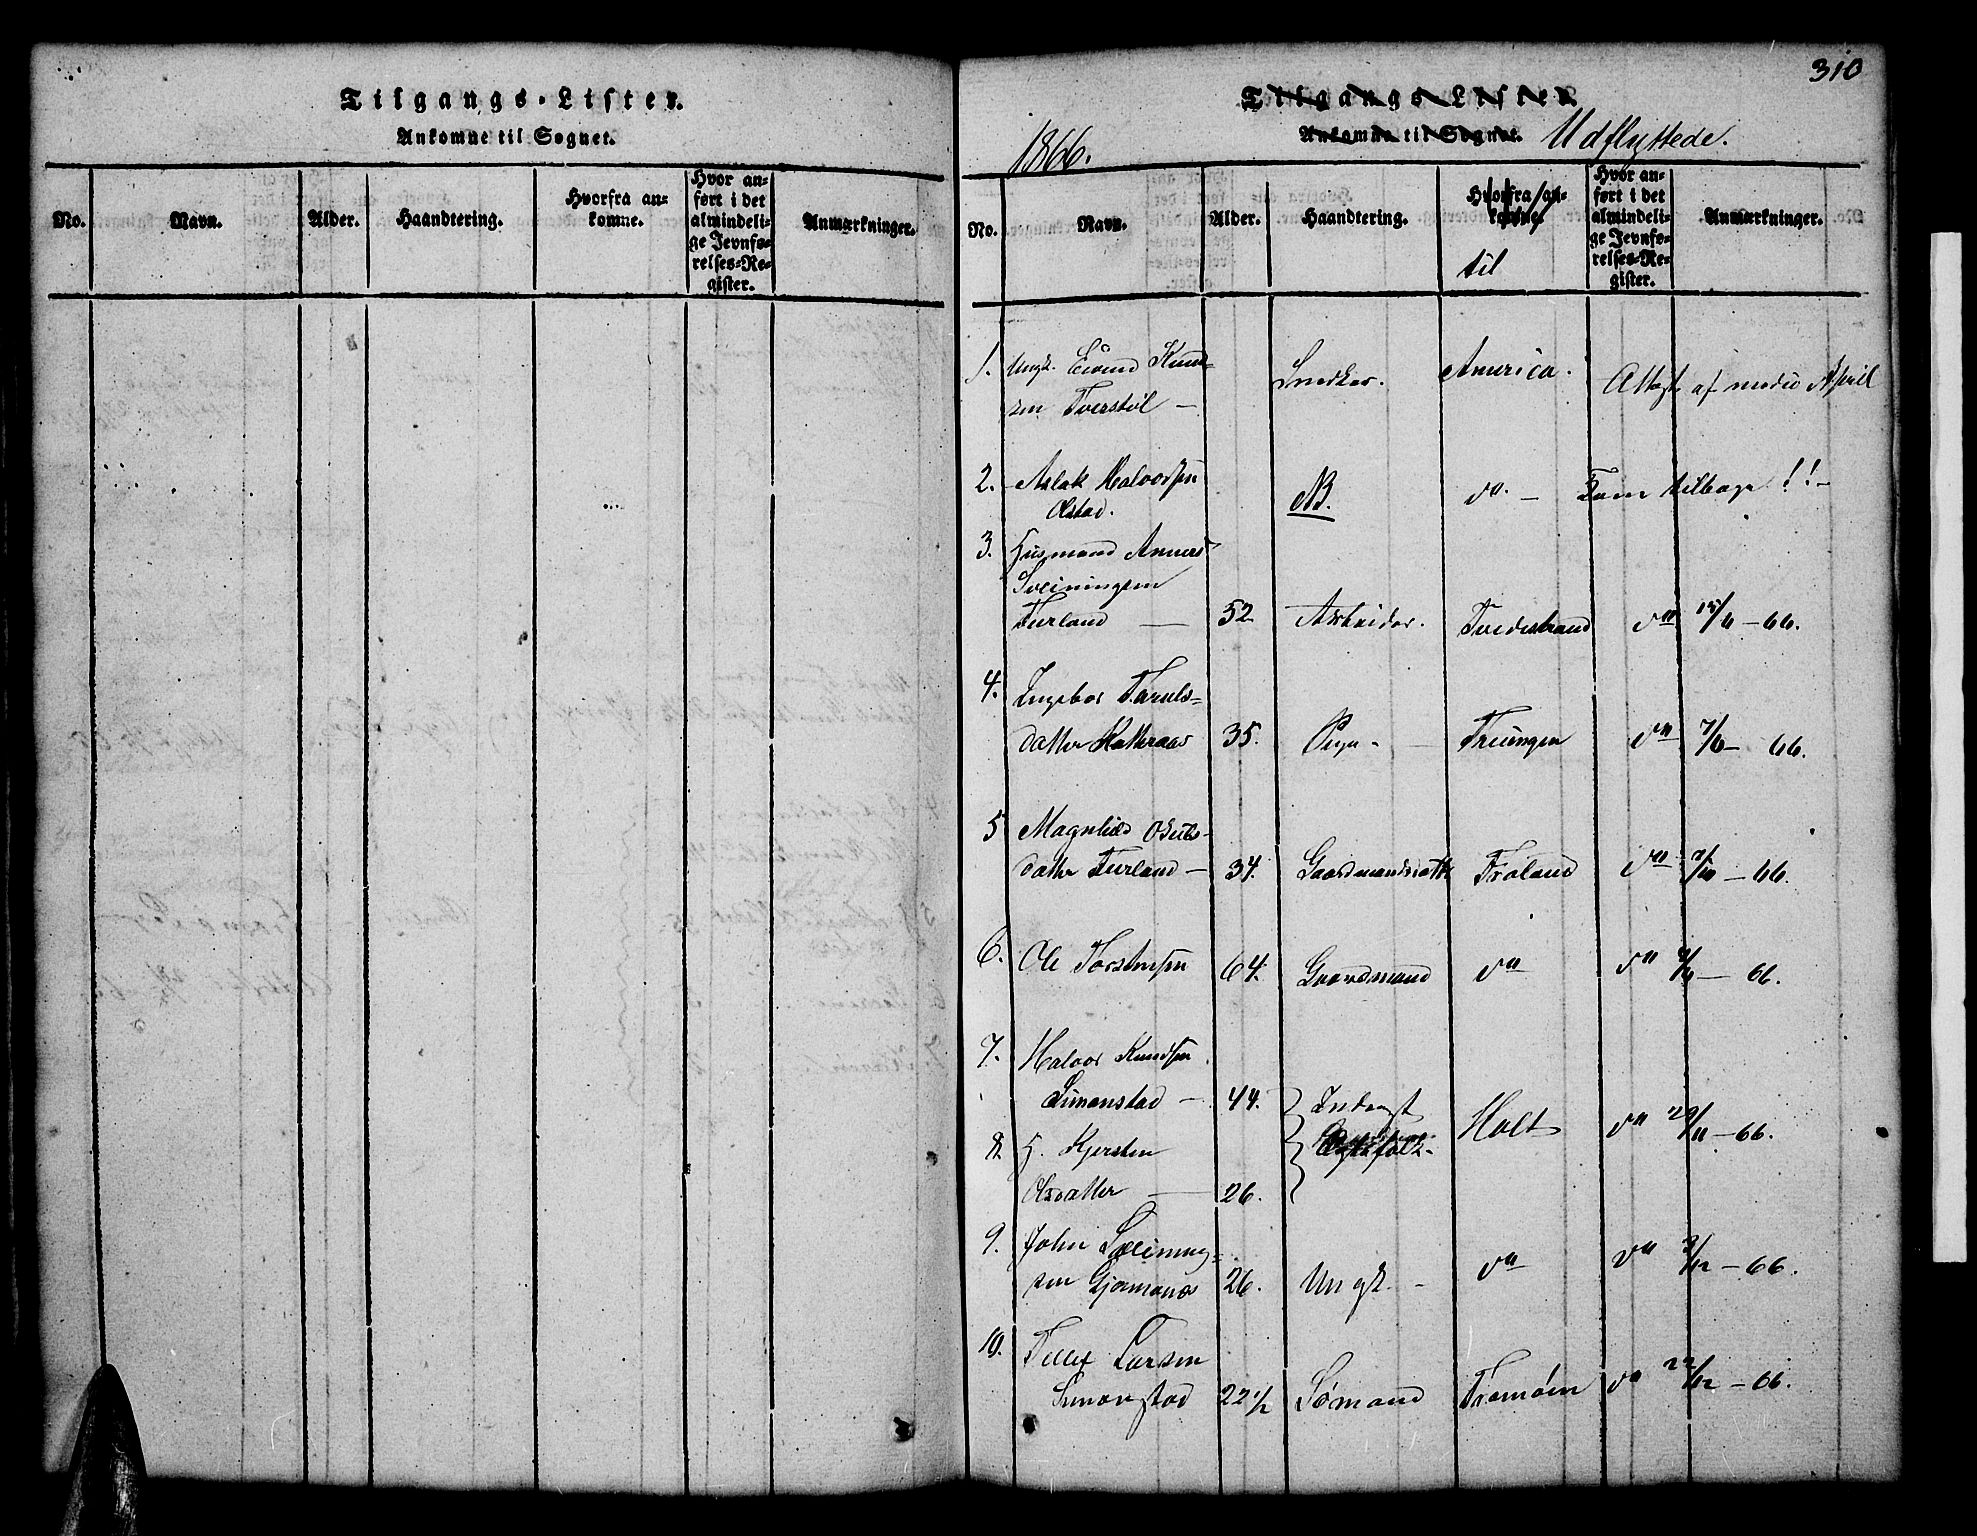 Tilgangs-Lister.
Ankomne til Sognet.
No.
Navn.
Alder.
Haandtering.
Hvorfra an-
komne.
Hvor an-
ført i det
almindeli-
ge Jevnfø-
relses-Re-
gister.
Anmærkninger.
310
Tilgangs-Lister
Ankomne til Sognet. Udflyttede.
1866.
No.
Navn.
Alder.
Haandtering.
Hvorfra an-
komne
til
Hvor an-
ført i det
almindeli-
ge Jevnfø-
relses-Re-
gister.
Anmærkninger.
1. Ungk. Eivind Knud-
sen Tverstøl — Snedker. America. Attest af medio April
2. Aslak Halvorsen
Ølstad. NB. do. — Kom tilbage!! —
3. Husmand Anders
Sveiningsen
Furland — 52 Arbeider. Tvedestrand do 15/6 — 66.
4. Ingebor Taruls-
datter Katteraas 35. Pige — Treungen do 7/6 — 66.
5 Magnhild
datter Furland — 34. Gaardmandsdatter Froland do — 66.
6. Ole Torstensen 64. Gaardmand do do — 66.
7. Halvor Knudsen
Simonstad — 44. Inderst Holt do 29/11 — 66.
8. H. Kjersten
Olsdatter — 26.
9. John Sveinung-
sen Gjømænes 26. Ungk. — do do 3/12 — 66.
10. Tellef Larsen
Simonstad 22 1/2 Sømand Tromøen do 22/12 — 66.